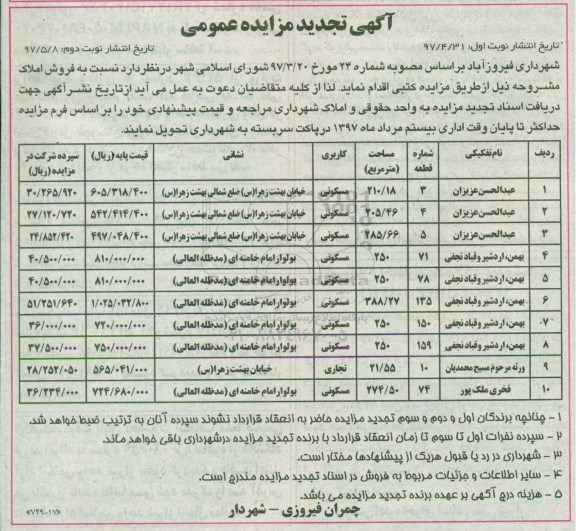 آگهی تجدید مزایده عمومی
تاریخ انتشار نوبت اول: ۹۷/۴/۳۱ تاریخ انتشار نوبت دوم: ۹۷/۵/۸
شهرداری فیروزآباد براساس مصوبه شماره ۲۴ مورخ ۹۷/۳/۲۰ شورای اسلامی شهر در نظر دارد نسبت به فروش املاک
مشروحه ذیل از طریق مزایده کتبی اقدام نماید. لذا از کلیه متقاضیان دعوت به عمل می آید از تاریخ نشر آگهی جهت
دریافت اسناد تجدید مزایده به واحد حقوقی و املاک شهرداری مراجعه و قیمت پیشنهادی خود را بر اساس فرم مزایده
حداکثر تا پایان وقت اداری بیستم مرداد ماه ۱۳۹۷ در پاکت سربسته به شهرداری تحویل نمایند.
ردیف نام تفکیکی شماره قطعه مساحت (مترمربع) کاربری نشانی قیمت پایه (ریال) سپرده شرکت در مزایده (ریال)
۱ عبدالحسن عزیزان ۳ ۲۱۰/۱۸ مسکونی خیابان بهشت زهرا(س) ضلع شمالی بهشت زهرا(س) ۶۰۵/۳۱۸/۴۰۰ ۳۰/۲۶۵/۹۲۰
۲ عبدالحسن عزیزان ۴ ۲۰۵/۴۶ مسکونی خیابان بهشت زهرا(س) ضلع شمالی بهشت زهرا(س) ۵۴۲/۴۱۴/۴۰۰ ۲۷/۱۲۰/۷۲۰
۳ عبدالحسن عزیزان ۵ ۲۸۵/۶۶ مسکونی خیابان بهشت زهرا(س) ضلع شمالی بهشت زهرا(س) ۴۹۷/۰۴۸/۴۰۰ ۲۴/۸۵۲/۴۲۰
۴ بهمن، اردشیر و قباد نجفی ۷۱ ۲۵۰ مسکونی بولوار امام خامنه ای (مدظله العالی) ۸۱۰/۰۰۰/۰۰۰ ۴۰/۵۰۰/۰۰۰
۵ بهمن، اردشیر و قباد نجفی ۷۸ ۲۵۰ مسکونی بولوار امام خامنه ای (مدظله العالی) ۸۱۰/۰۰۰/۰۰۰ ۴۰/۵۰۰/۰۰۰
۶ بهمن، اردشیر و قباد نجفی ۱۳۵ ۳۸۸/۲۷ مسکونی بولوار امام خامنه ای (مدظله العالی) ۱/۰۲۵/۰۳۲/۸۰۰ ۵۱/۲۵۱/۶۴۰
۷ بهمن، اردشیر و قباد نجفی ۱۵۰ ۲۵۰ مسکونی بولوار امام خامنه ای (مدظله العالی) ۷۲۰/۰۰۰/۰۰۰ ۳۶/۰۰۰/۰۰۰
۸ بهمن، اردشیر و قباد نجفی ۱۵۹ ۲۵۰ مسکونی بولوار امام خامنه ای (مدظله العالی) ۷۵۰/۰۰۰/۰۰۰ ۳۷/۵۰۰/۰۰۰
۹ ورثه مرحوم مسیح محمدیان ۱۰ ۲۱/۵۵ تجاری خیابان بهشت زهرا(س) ۵۶۵/۰۴۱/۰۰۰ ۲۸/۲۵۲/۰۵۰
۱۰ فخری ملک پور ۷۴ ۲۷۴/۵۰ مسکونی بولوار امام خامنه ای (مدظله العالی) ۷۲۴/۶۸۰/۰۰۰ ۳۶/۲۳۴/۰۰۰
۱ - چنانچه برندگان اول و دوم و سوم تجدید مزایده حاضر به انعقاد قرارداد نشوند سپرده آنان به ترتیب ضبط خواهد شد.
۲ - سپرده نفرات اول تا سوم تا زمان انعقاد قرارداد با برنده تجدید مزایده در شهرداری باقی خواهد ماند.
۳ - شهرداری در رد یا قبول هریک از پیشنهادها مختار است.
۴ - سایر اطلاعات و جزئیات مربوط به فروش در اسناد تجدید مزایده مندرج است.
۵ - هزینه درج آگهی بر عهده برنده تجدید مزایده می باشد.
چمران فیروزی - شهردار
۹۷۲۹۰۱۷۵